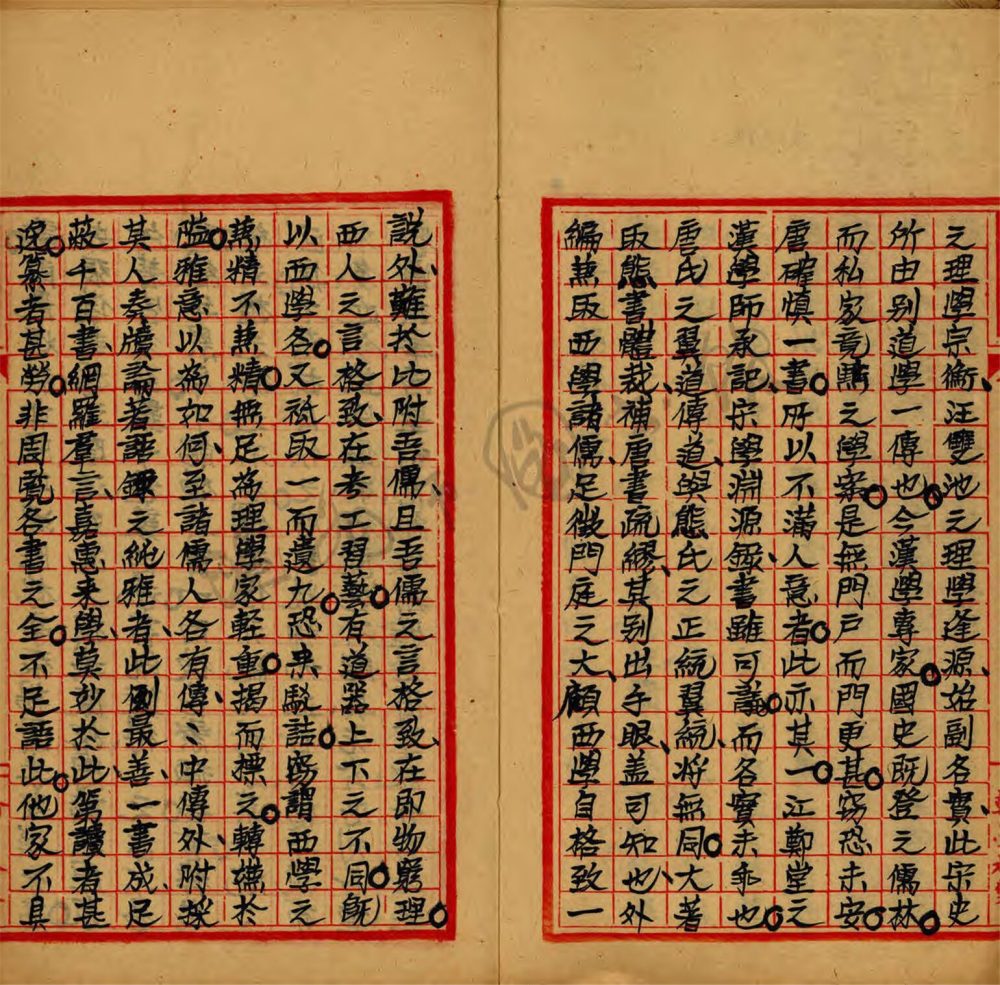 之理學宗衡、汪雙池之理學逢源、始副名實、此宋史
所由别道學一傳也。今漢學專家。國史既登之儒林。
而私家竟騁之學案。是無門戶而門更甚。竊恐未安。
唐確慎一書。所以不滿人意者。此亦其一。江鄭堂之
漢學師承記、宋學淵源錄、書雖可議。而各實未乖也。
唐氏之翼道傳道、與熊氏之正統翼統、將無同。大著
取熊書體裁、補唐書疏繆、其别出手眼、盖可知也、外
編兼取西學諸儒、足徵門庭之大、顧西學自格致一
說外、難於比附吾儒、且吾儒之言格致、在即物窮理。
西人之言格致、在考工習藝。有道器上下之不同。既
以西學名。又祇取一而遺九。恐來駁詰。竊謂西學之
兼精不兼精。無足為理學家輕重。揭而操之。轉嫌於
隘。雅意以為如何、至諸儒人各有傳、〻中傳外、附採
其人奏牘論著語錄之純雅者、此例最善、一書成、足
蔽千百書、網羅羣言、嘉惠来學、莫妙於此、第讀者甚
逸。纂者甚勞。非周覽各書之全。不足語此。他家不具